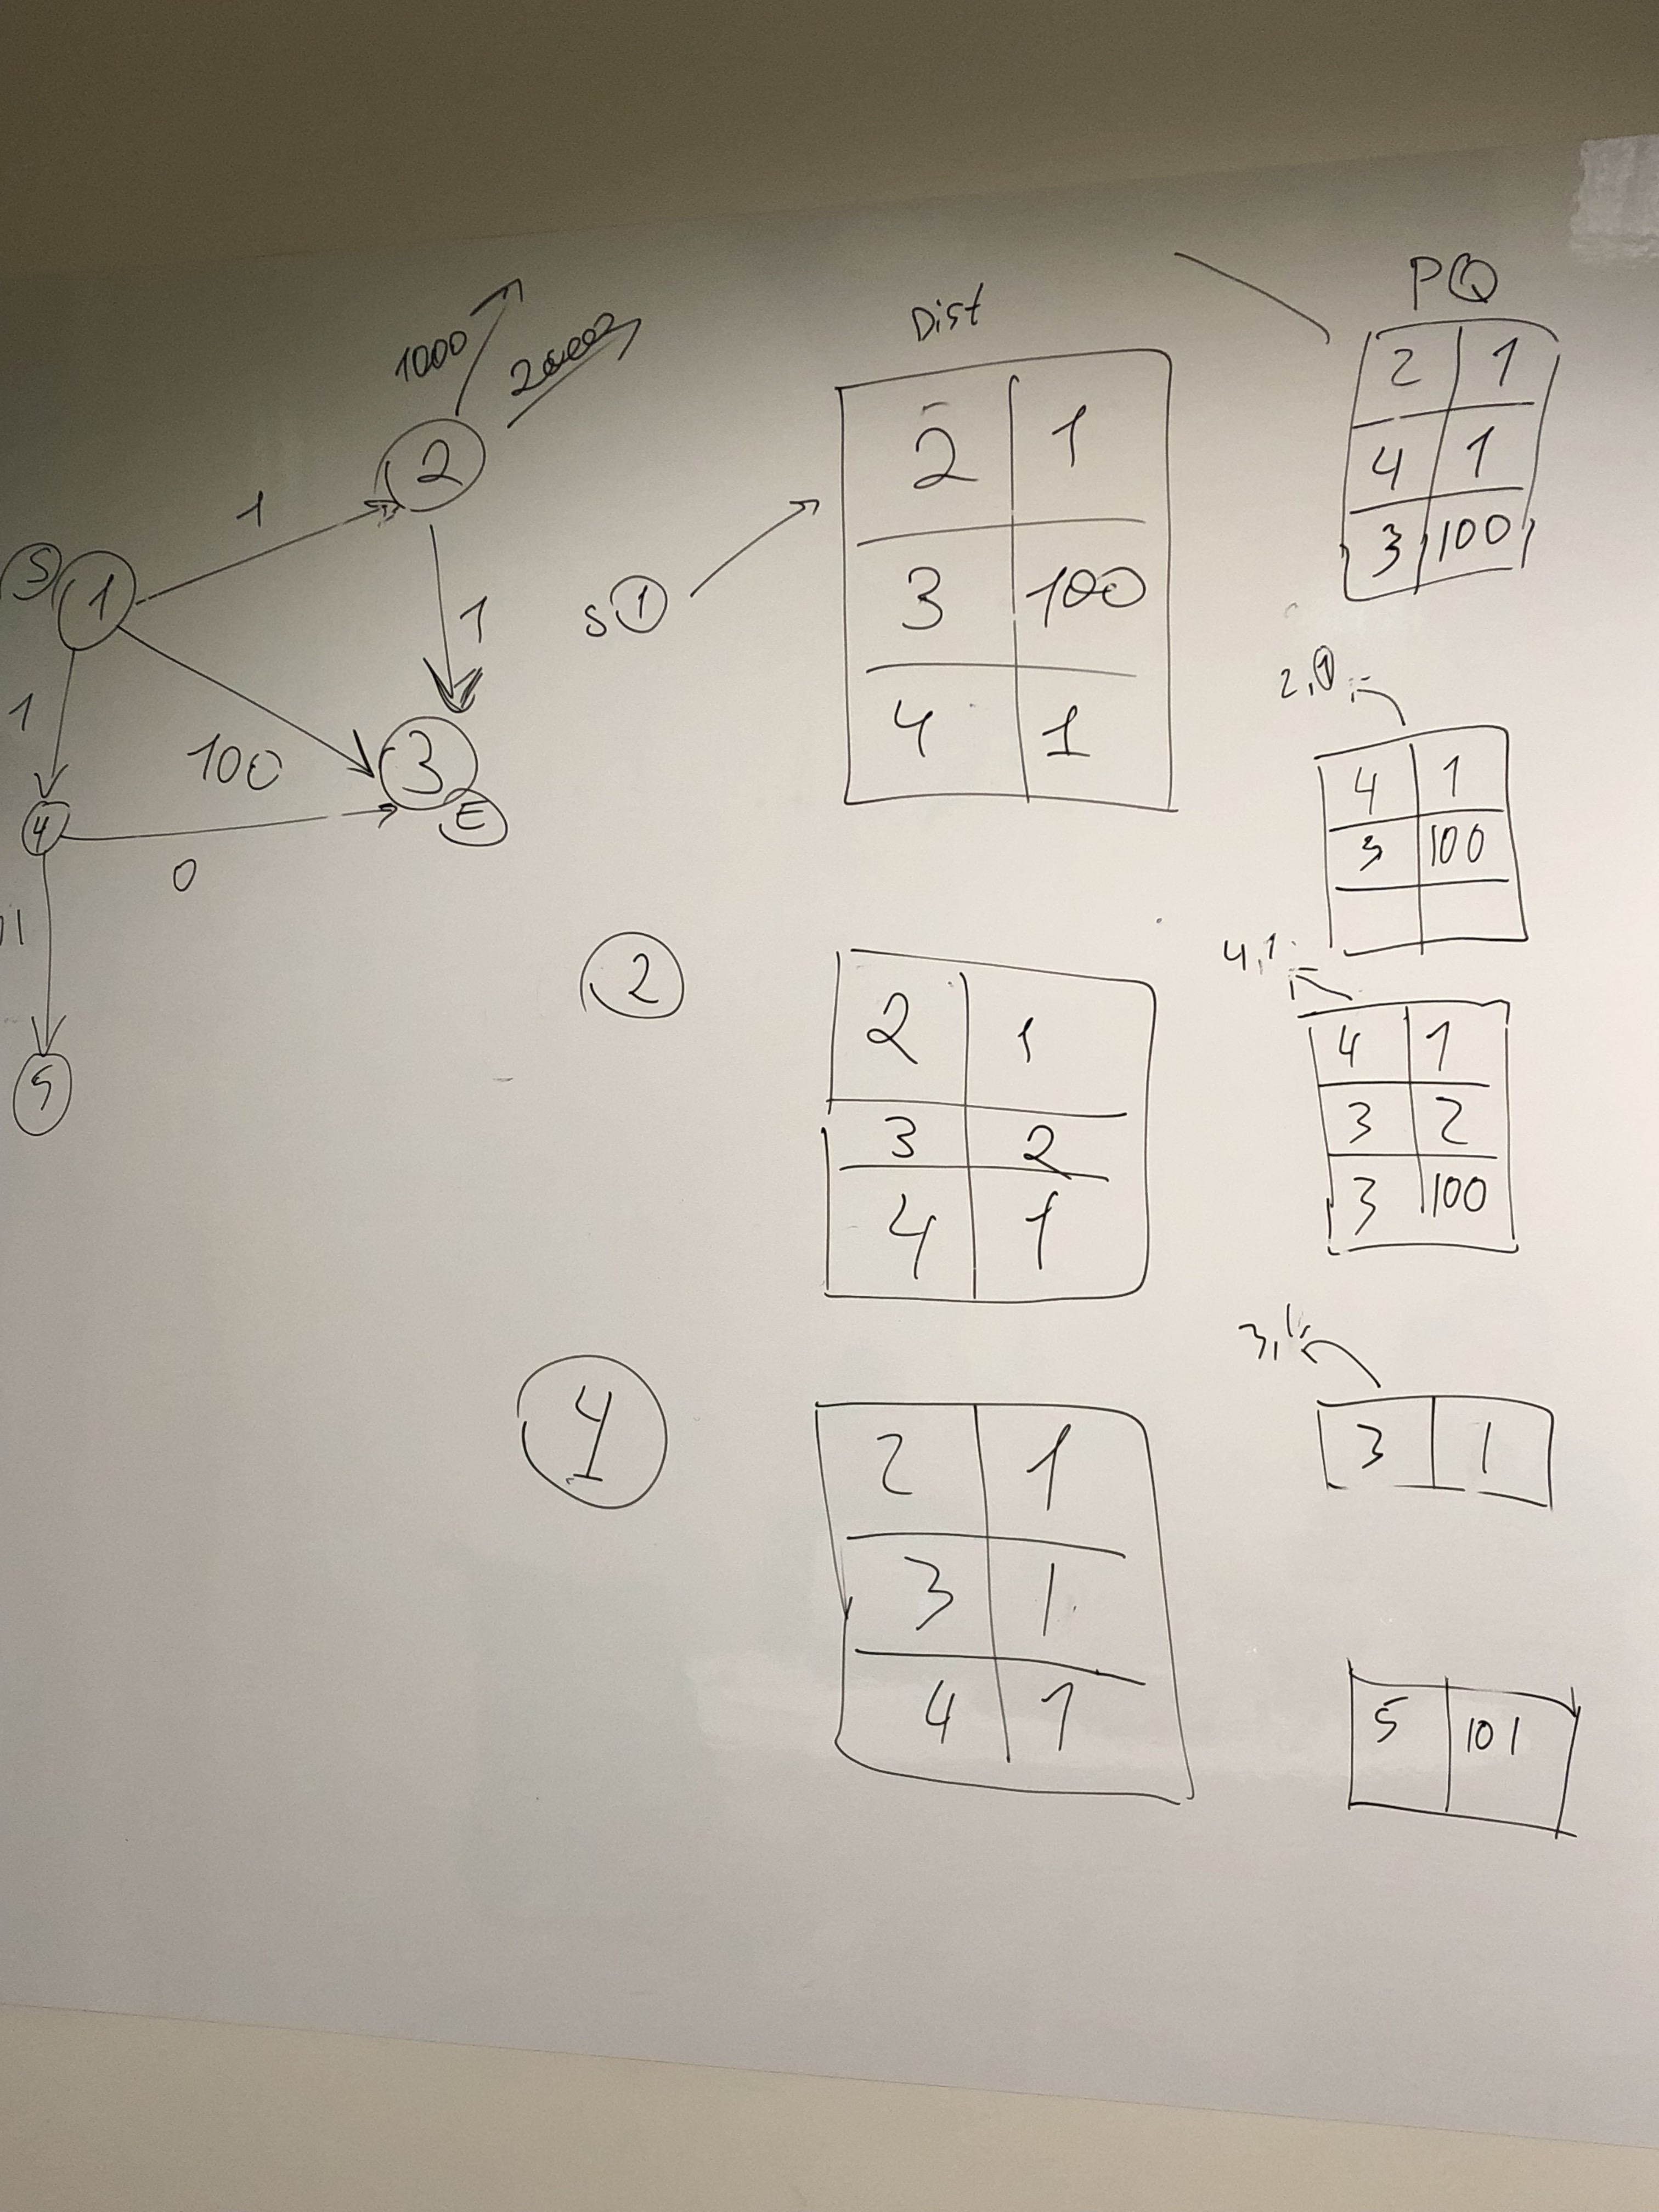 1000
2
1
S 1
1
1
100
3
E
4
0
5
Dist
S 1
2 1
3 100
4 1
2
2 1
3 2
4 1
4
2 1
3 1
4 1
PQ
2 1
4 1
3 100
2,1
4 1
3 100
4,1
4 1
3 2
3 100
3,1
3 1
5 101